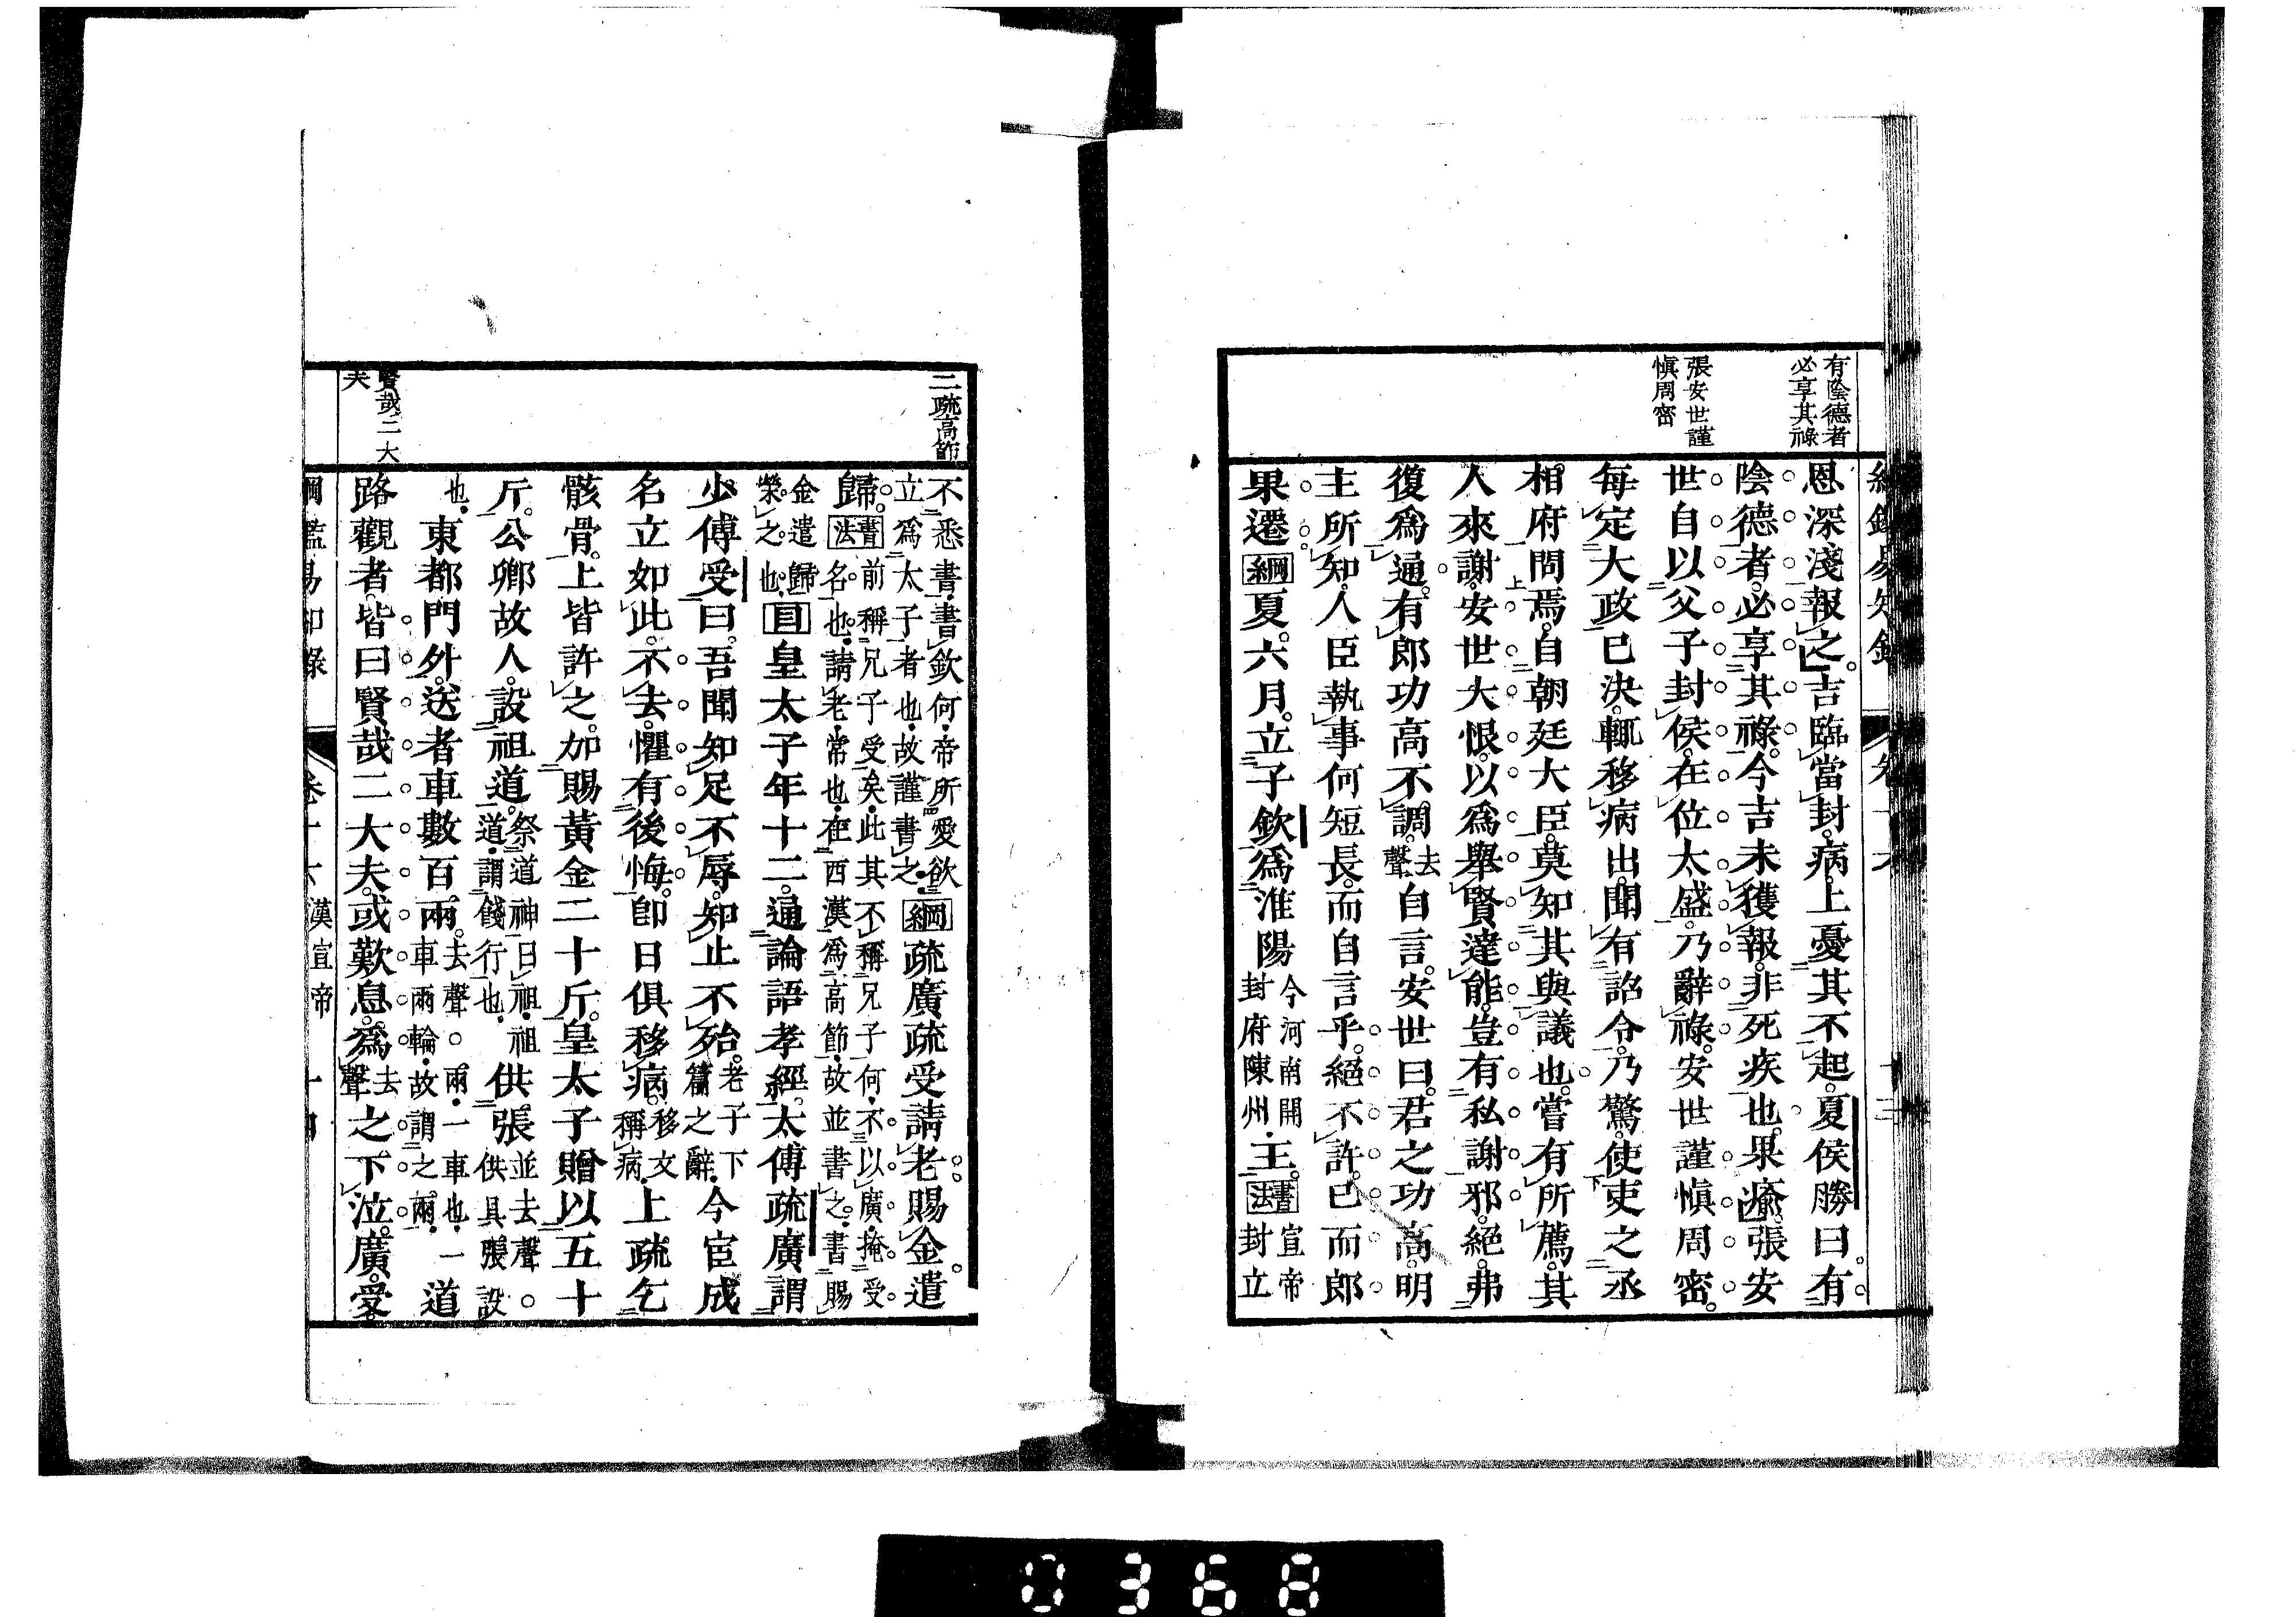 有陰德者
必享其祿
張安世謹
愼周密
恩深淺報之。吉臨當封。病。上憂其不起。夏侯勝曰。有
陰德者。必享其祿。今吉未獲報。非死疾也。果瘉。張安
世自以父子封侯。在位太盛。乃辭祿。安世謹愼周密。
每定大政已決。輒移病出。聞有詔令。乃驚。使吏之丞
相府問焉。自朝廷大臣。莫知其與議也。嘗有所薦。其
人來謝。安世大恨。以爲舉賢達能。豈有私謝邪。絕。弗
復爲通。有郎功高不調。去聲自言。安世曰。君之功高。明
主所知。人臣執事何短長。而自言乎。絕不許。已而郎
果遷 綱 夏。六月。立子欽爲淮陽今河南開封府陳州。王。書法宣帝封立
二疏高節
賢哉二大
夫
不悉書。書欽何。帝所愛欲
立爲太子者也。故謹書之。綱 疏廣疏受請老。賜金遣
歸。書法前稱兄子受矣。此其不稱兄子何。不以廣掩受
名也。請老。常也。在西漢爲高節。故並書之。書賜
金遣歸榮之也。目 皇太子年十二。通論語孝經。太傅疏廣謂
少傅受曰。吾聞知足不辱。知止不殆。老子下篇之辭。今宦成
名立如此。不去。懼有後悔。卽日俱移病。移文稱病。上疏乞
骸骨。上皆許之。加賜黃金二十斤。皇太子贈以五十
斤。公卿故人。設祖道。祭道神曰祖。祖道。謂餞行也。供張並去聲。供具張設
也。東都門外。送者車數百兩。去聲。兩。一車也。一車兩輪。故謂之兩。道
路觀者。皆曰賢哉二大夫。或歎息。爲去聲之下泣。廣。受。
綱鑑易知錄 卷十六 漢宣帝 十四
0368